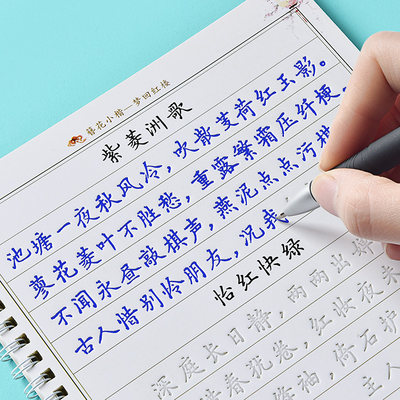 簪花小楷—梦回红楼
紫菱洲歌
池塘一夜秋风冷，吹散芰荷红玉影。
蓼花菱叶不胜愁，重露繁霜压纤梗。
不闻永昼敲棋声，燕泥点点污棋
古人惜别怜朋友，况我
怡红快绿
深庭长日静，两两出婵
春犹卷，红妆夜未
绛袖，倚石护
主人